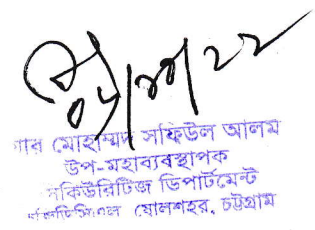 মোহাম্মদ সফিউল আলম
উপ-মহাব্যবস্থাপক
সিকিউরিটিজ ডিপার্টমেন্ট
ষোলশহর, চট্টগ্রাম